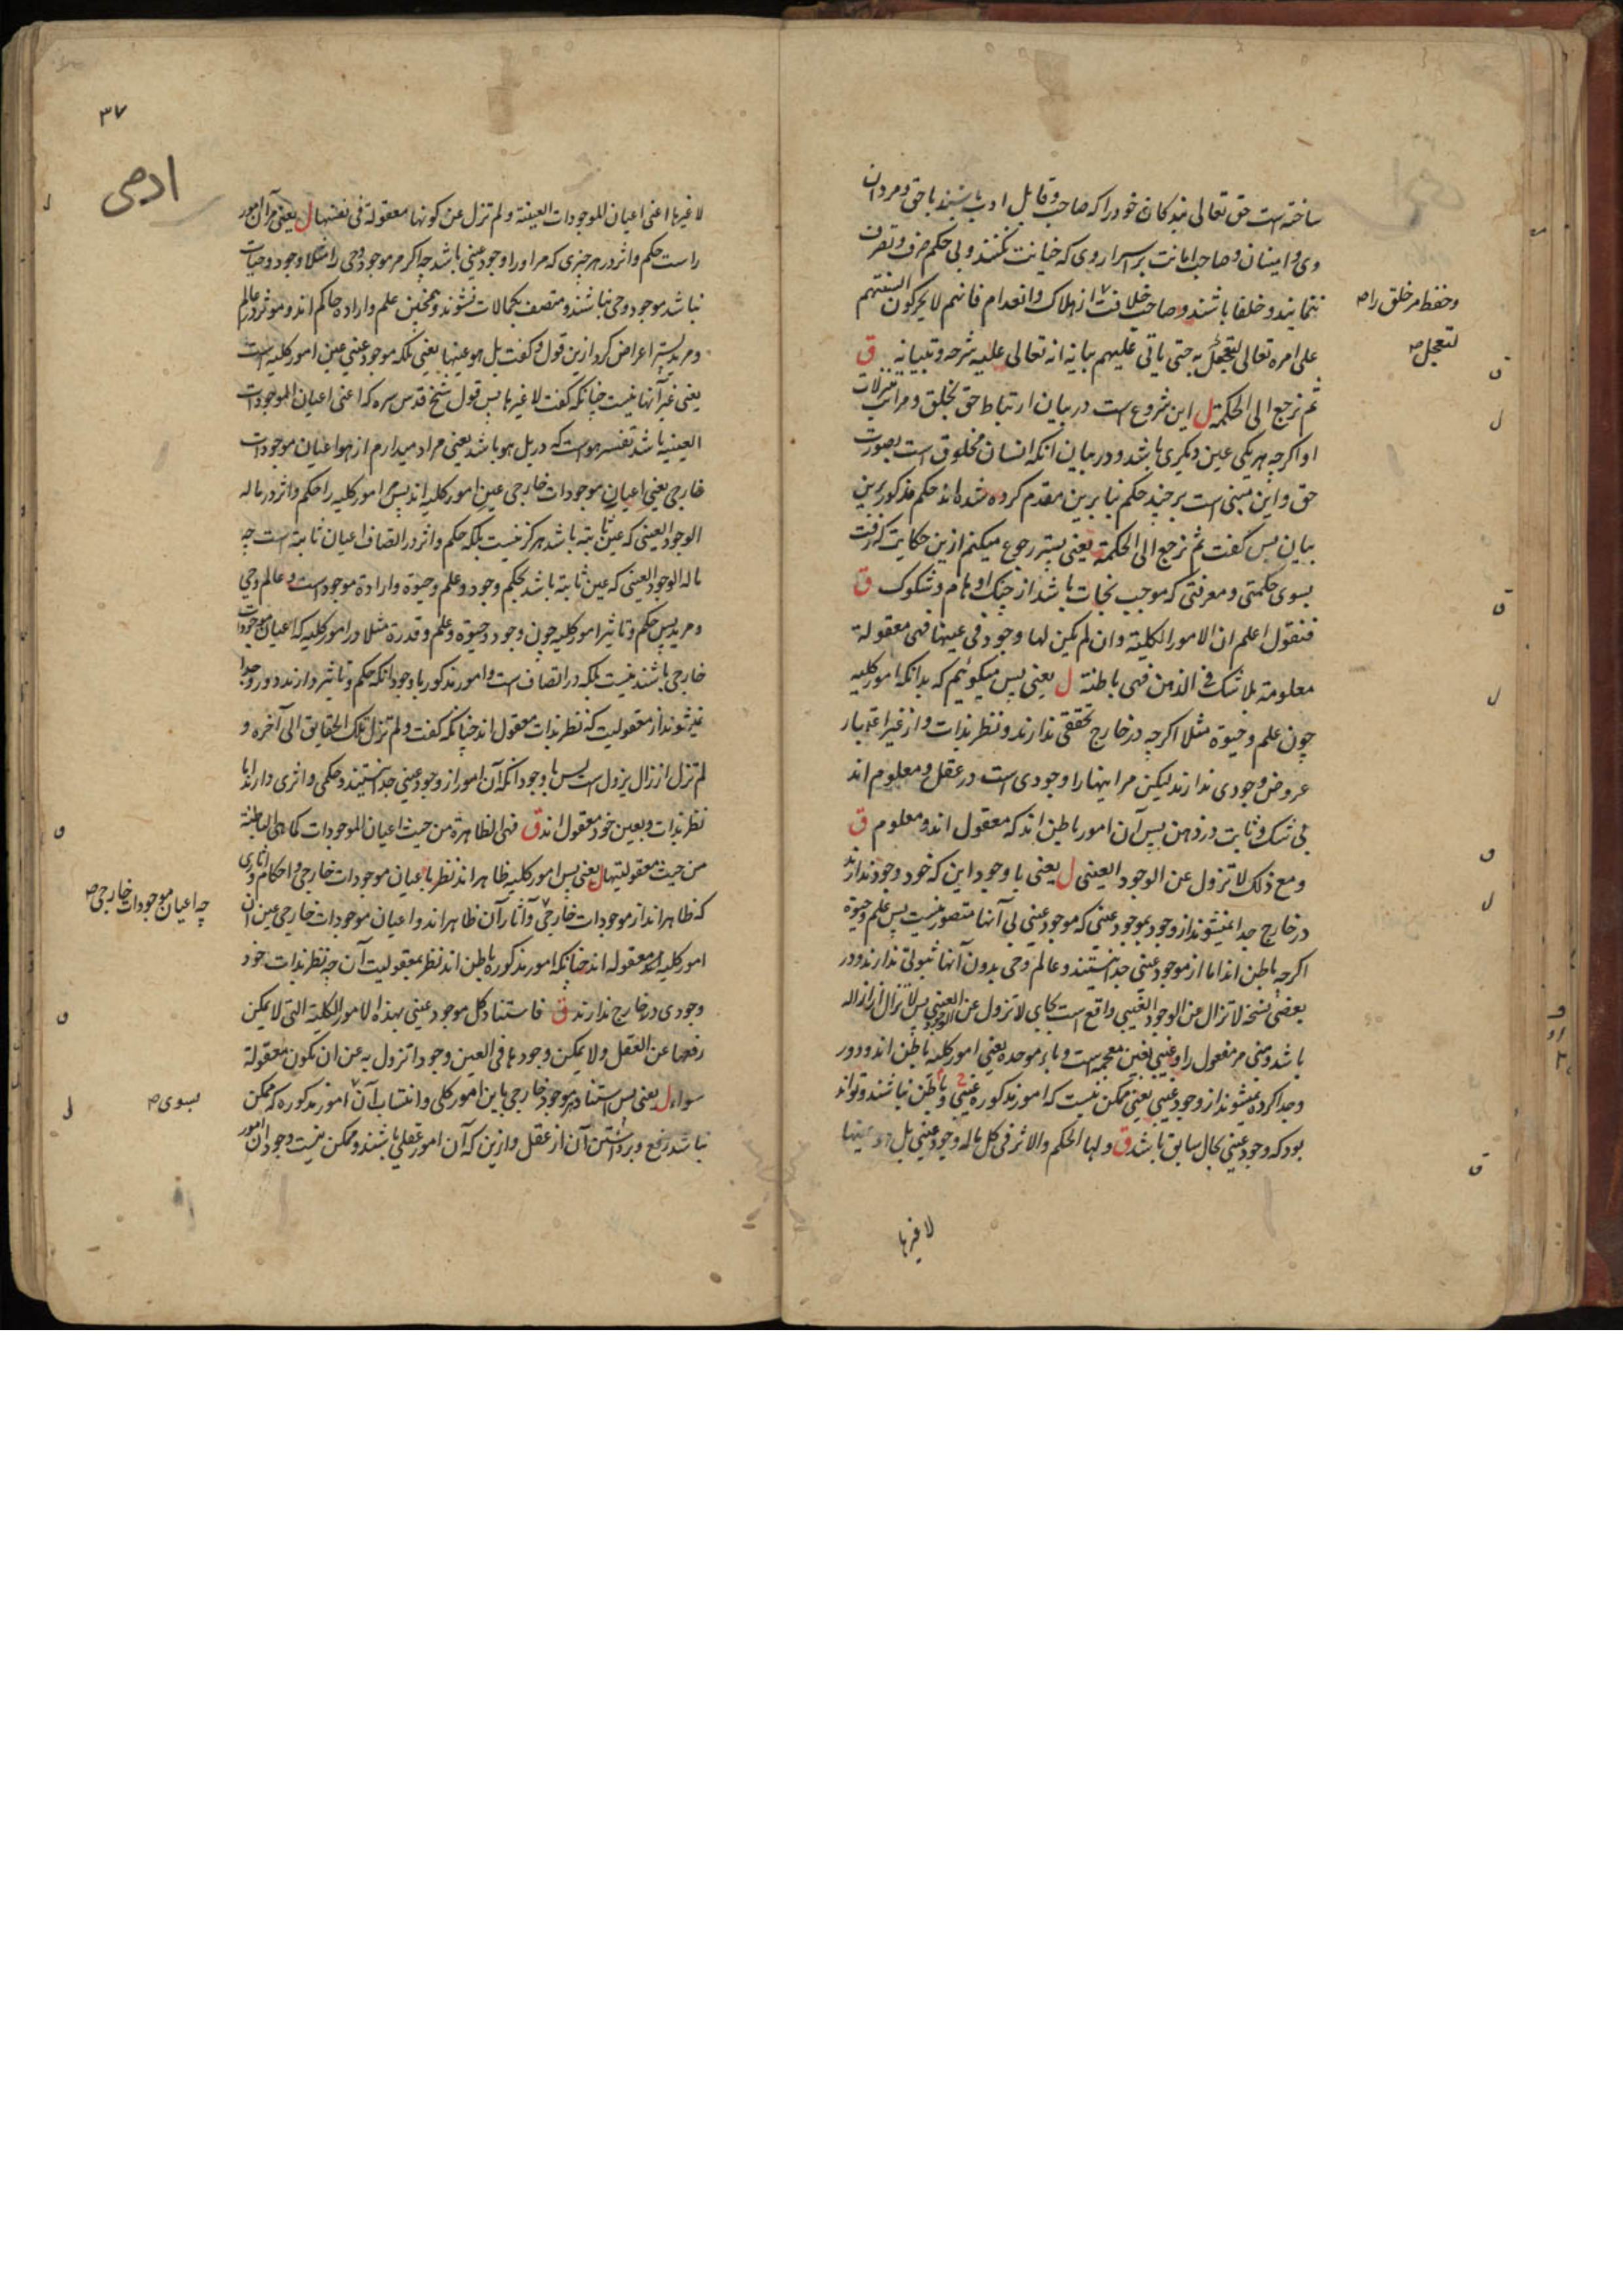 ساخته است حق تعالی بندگان خود را که صاحب و قابل ادب باشند با حق و مردان
وی و امینان و صاحب امانت بر اسرار وی که خیانت نکنند و بی حکم صرف و تصرف
ننمایند و خلفا باشند و صاحب خلافت از هلاک و انعدام فانهم لا یحرکون السنتهم
وحفظ مر خلق را صح
علی امره تعالی لتعجل به حتی یاتی علیهم بیانه انه تعالی علیه شرحه و تبیانه ق
لتعجل صح
ثم نرجع الی الحکمة ل این شروع است در بیان ارتباط حق بخلق و مراتب تنزلات
او اگرچه هر یکی عین دیگری باشد و در بیان انکه انسان مخلوق است بصورت
حق و این مبنی است بر چند حکم بنا برین مقدم کرده شده اند حکم مذکور برین
بیان پس گفت ثم نرجع الی الحکمة یعنی پستر رجوع میکنم ازین حکایت که رفت
بسوی حکمتی و معرفتی که موجب نجات باشد از چنک اوهام و شکوک ق
فنقول اعلم ان الامور الکلیة وان لم یکن لها وجود فی عینها فهی معقولة
معلومة بلا شک فی الذهن فهی باطنة ل یعنی پس میکوئیم که بدانکه امور کلیه
چون علم و حیوة مثلا اکرچه در خارج تحققی ندارند و نظر بذات و از غیر اعتبار
عروض وجودی ندارند لیکن مر اینها را وجودی است در عقل و معلوم اند
بی شک و ثابت در ذهن پس آن امور باطن اند که معقول اند و معلوم ق
و مع ذلک لا تزول عن الوجود العینی ل یعنی با وجود این که خود وجود ندارند
در خارج جدا نمیشوند از وجود بموجود عینی که موجود عینی بی آنها متصور نیست پس علم و حیوة
اکرچه باطن اند اما از موجود عینی جدا نیستند و عالم و حی بدون آنها ثبوتی ندارند و در
بعضی نسخه لا تزال عن الوجود الغیبی واقع است بجای لا تزول عن الوجود العینی پس لا تزال از ازاله
باشد و مبنی مر مفعول را و غیبی بغین معجمه است و باء موحده یعنی امور کلیه باطن اند و دور
و جدا کرده نمیشوند از وجود غیبی یعنی ممکن نیست که امور مذکوره غیبی و باطن نباشند و تواند
بود که وجود عینی بحال سابق باشد ق و لها الحکم والاثر فی کل ماله وجود عینی بل هو عینها
لا غیرها
۳۷
ادمی
لا غیرها اعنی اعیان للموجودات العینیة و لم تزل عن کونها معقولة فی نفسها ل یعنی مر آن امور
راست حکم و اثر در هر چیزی که مر او را وجود عینی باشد چه اکر مر موجود و حی را مثلا وجود و حیات
نباشد موجود و حی نباشند و متصف بکمالات نشوند و همچنین علم و اراده حاکم اند و موثر در عالم
و مرید پستر اعراض کرد ازین قول و کفت بل هو عینها یعنی بلکه موجود عینی عین امور کلیه است
یعنی غیر آنها نیست چنانکه کفت لا غیرها پس قول شیخ قدس سره که اعنی اعیان الموجودات
العینیه باشد تفسیر هو است که در بل هو باشد یعنی مراد میدارم از هو اعیان موجودات
خارجی یعنی اعیان موجودات خارجی عین امور کلیه اند پس امور کلیه را حکم و اثر در ماله
الوجود العینی که عین ثابته باشد هرکز نیست بلکه حکم و اثر در اتصاف اعیان ثابته است چه
ماله الوجود العینی که عین ثابته باشد بحکم وجود و علم و حیوة و ارادة موجود است و عالم و حی
و مرید پس حکم و تاثیر امور کلیه چون وجود و حیوة و علم و قدرة مثلا در امور کلیه که اعیان موجودات
خارجی باشند نیست بلکه در اتصاف است و امور مذکور با وجود انکه حکم و تاثیر دارند دور و جدا
نمیشوند از معقولیت که نظر بذات معقول اند چنانکه کفت و لم تزل تلک الحقایق الی آخره و
لم تزل از زال یزول است پس با وجود انکه آن امور از وجود عینی جدا نیستند و حکمی و اثری دارند اما
نظر بذات و بعین خود معقول اند ق فهی الظاهرة من حیث اعیان الموجودات کما هی الباطنة
من حیث معقولیتها ل یعنی پس امور کلیه ظاهر اند نظر باعیان موجودات خارجی و احکام و آثاری
که ظاهر اند از موجودات خارجی و آثار آن ظاهر اند و اعیان موجودات خارجی عین آن
چه اعیان موجودات خارجی صح
امور کلیه معقوله اند چنانکه امور مذکوره باطن اند نظر بمعقولیت آن چه نظر بذات خود
وجودی در خارج ندارند ق فاستناد کل موجود عینی بهذه الامور الکلیة التی لا یمکن
رفعها عن العقل و لا یمکن وجودها فی العین وجودا تزول به عن ان تکون معقولة
سواء ل یعنی پس استناد هر موجود خارجی باین امور کلی و انتساب آن امور مذکوره که ممکن
بسوی صح
نباشد رفع و برداشتن آن از عقل و ازین که آن امور عقلی باشند و ممکن نیست وجود آن امور